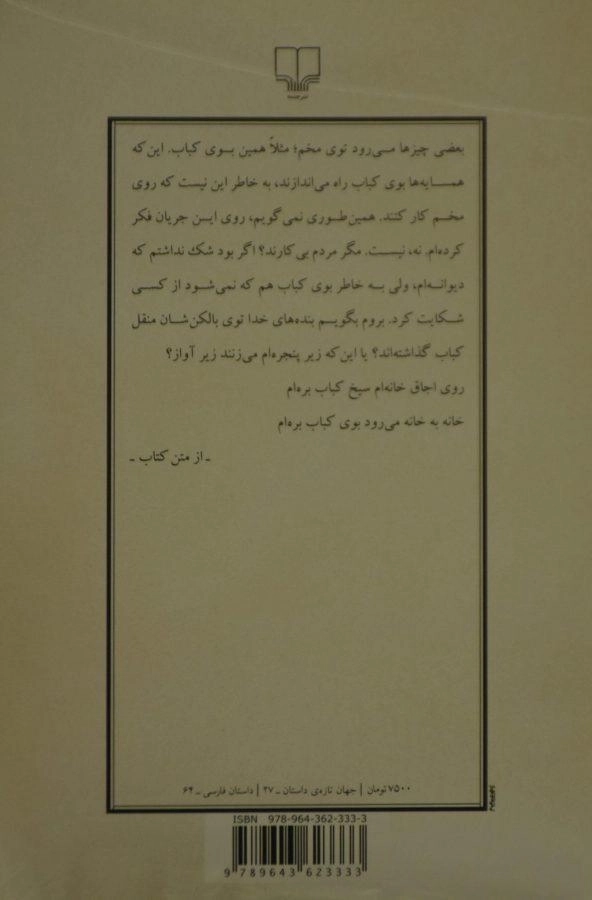 نشرچشمه
بعضی چیزها می‌رود توی مخم؛ مثلاً همین بوی کباب. این‌که
همسایه‌ها بوی کباب راه می‌اندازند، به خاطر این نیست که روی
مخم کار کنند. همین‌طوری نمی‌گویم، روی این جریان فکر
کرده‌ام. نه، نیست. مگر مردم بی‌کارند؟ اگر بود شک نداشتم که
دیوانه‌ام، ولی به خاطر بوی کباب هم که نمی‌شود از کسی
شکایت کرد. بروم بگویم بنده‌های خدا توی بالکن‌شان منقل
کباب گذاشته‌اند؟ یا این‌که زیر پنجره‌ام می‌زنند زیر آواز؟
روی اجاق خانه‌ام سیخ کباب بره‌ام
خانه به خانه می‌رود بوی کباب بره‌ام
ـ از متن کتاب ـ
۷۵۰۰ تومان | جهان تازه‌ی داستان ـ ۲۷ | داستان فارسی ـ ۶۴
ISBN 978-964-362-333-3
9 789643 623333